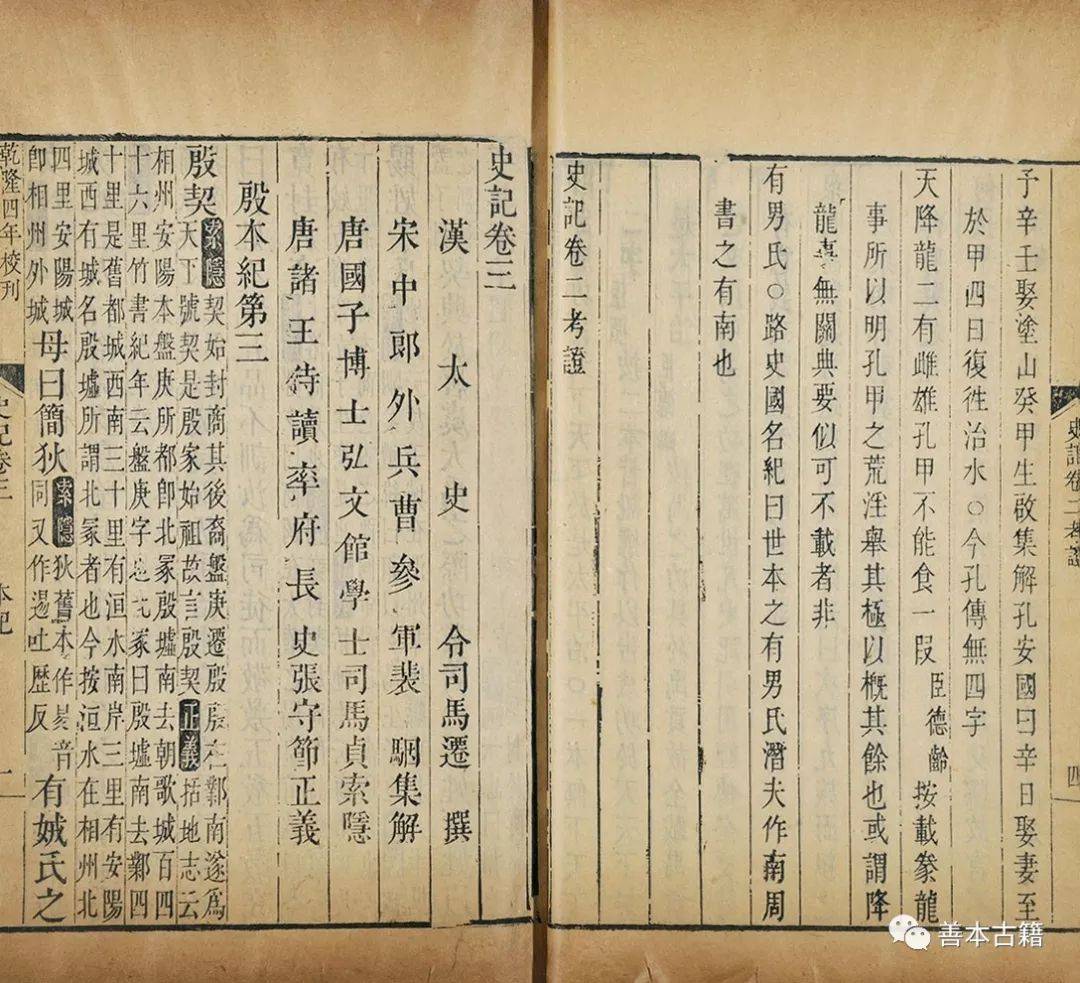 予辛壬娶塗山癸甲生啟集解孔安國曰辛日娶妻至
於甲四日復徃治水○今孔傳無四字
天降龍二有雌雄孔甲不能食一叚臣德齡按載豢龍
事所以明孔甲之荒淫舉其極以概其餘也或謂降
龍嘉無關典要似可不載者非
有男氏○路史國名紀曰世本之有男氏潛夫作南周
書之有南也
史記卷二考證
史記卷二考證
四
史記卷三
漢太史令司馬遷撰
宋中郎外兵曹參軍裴駰集解
唐國子博士弘文館學士司馬貞索隱
唐諸王侍讀率府長史張守節正義
殷本紀第三
殷契
索隱契始封商其後裔盤庚遷殷殷在鄴南遂爲
天下號契是殷家始祖故言殷契正義括地志云
相州安陽本盤庚所都卽北冢殷墟南去朝歌城百四
十六里竹書紀年云盤庚字
冢曰殷墟南去鄴四
十里是舊都城西南三十里有洹水南岸三里有安陽
城西有城名殷墟所謂北冢者也今按洹水在相州北
四里安陽城
卽相州外城
母曰簡狄
索隱狄舊本作易音
同又作逷吐歴反
有娀氏之
乾隆四年校刊
史記卷三
本紀
一
善本古籍